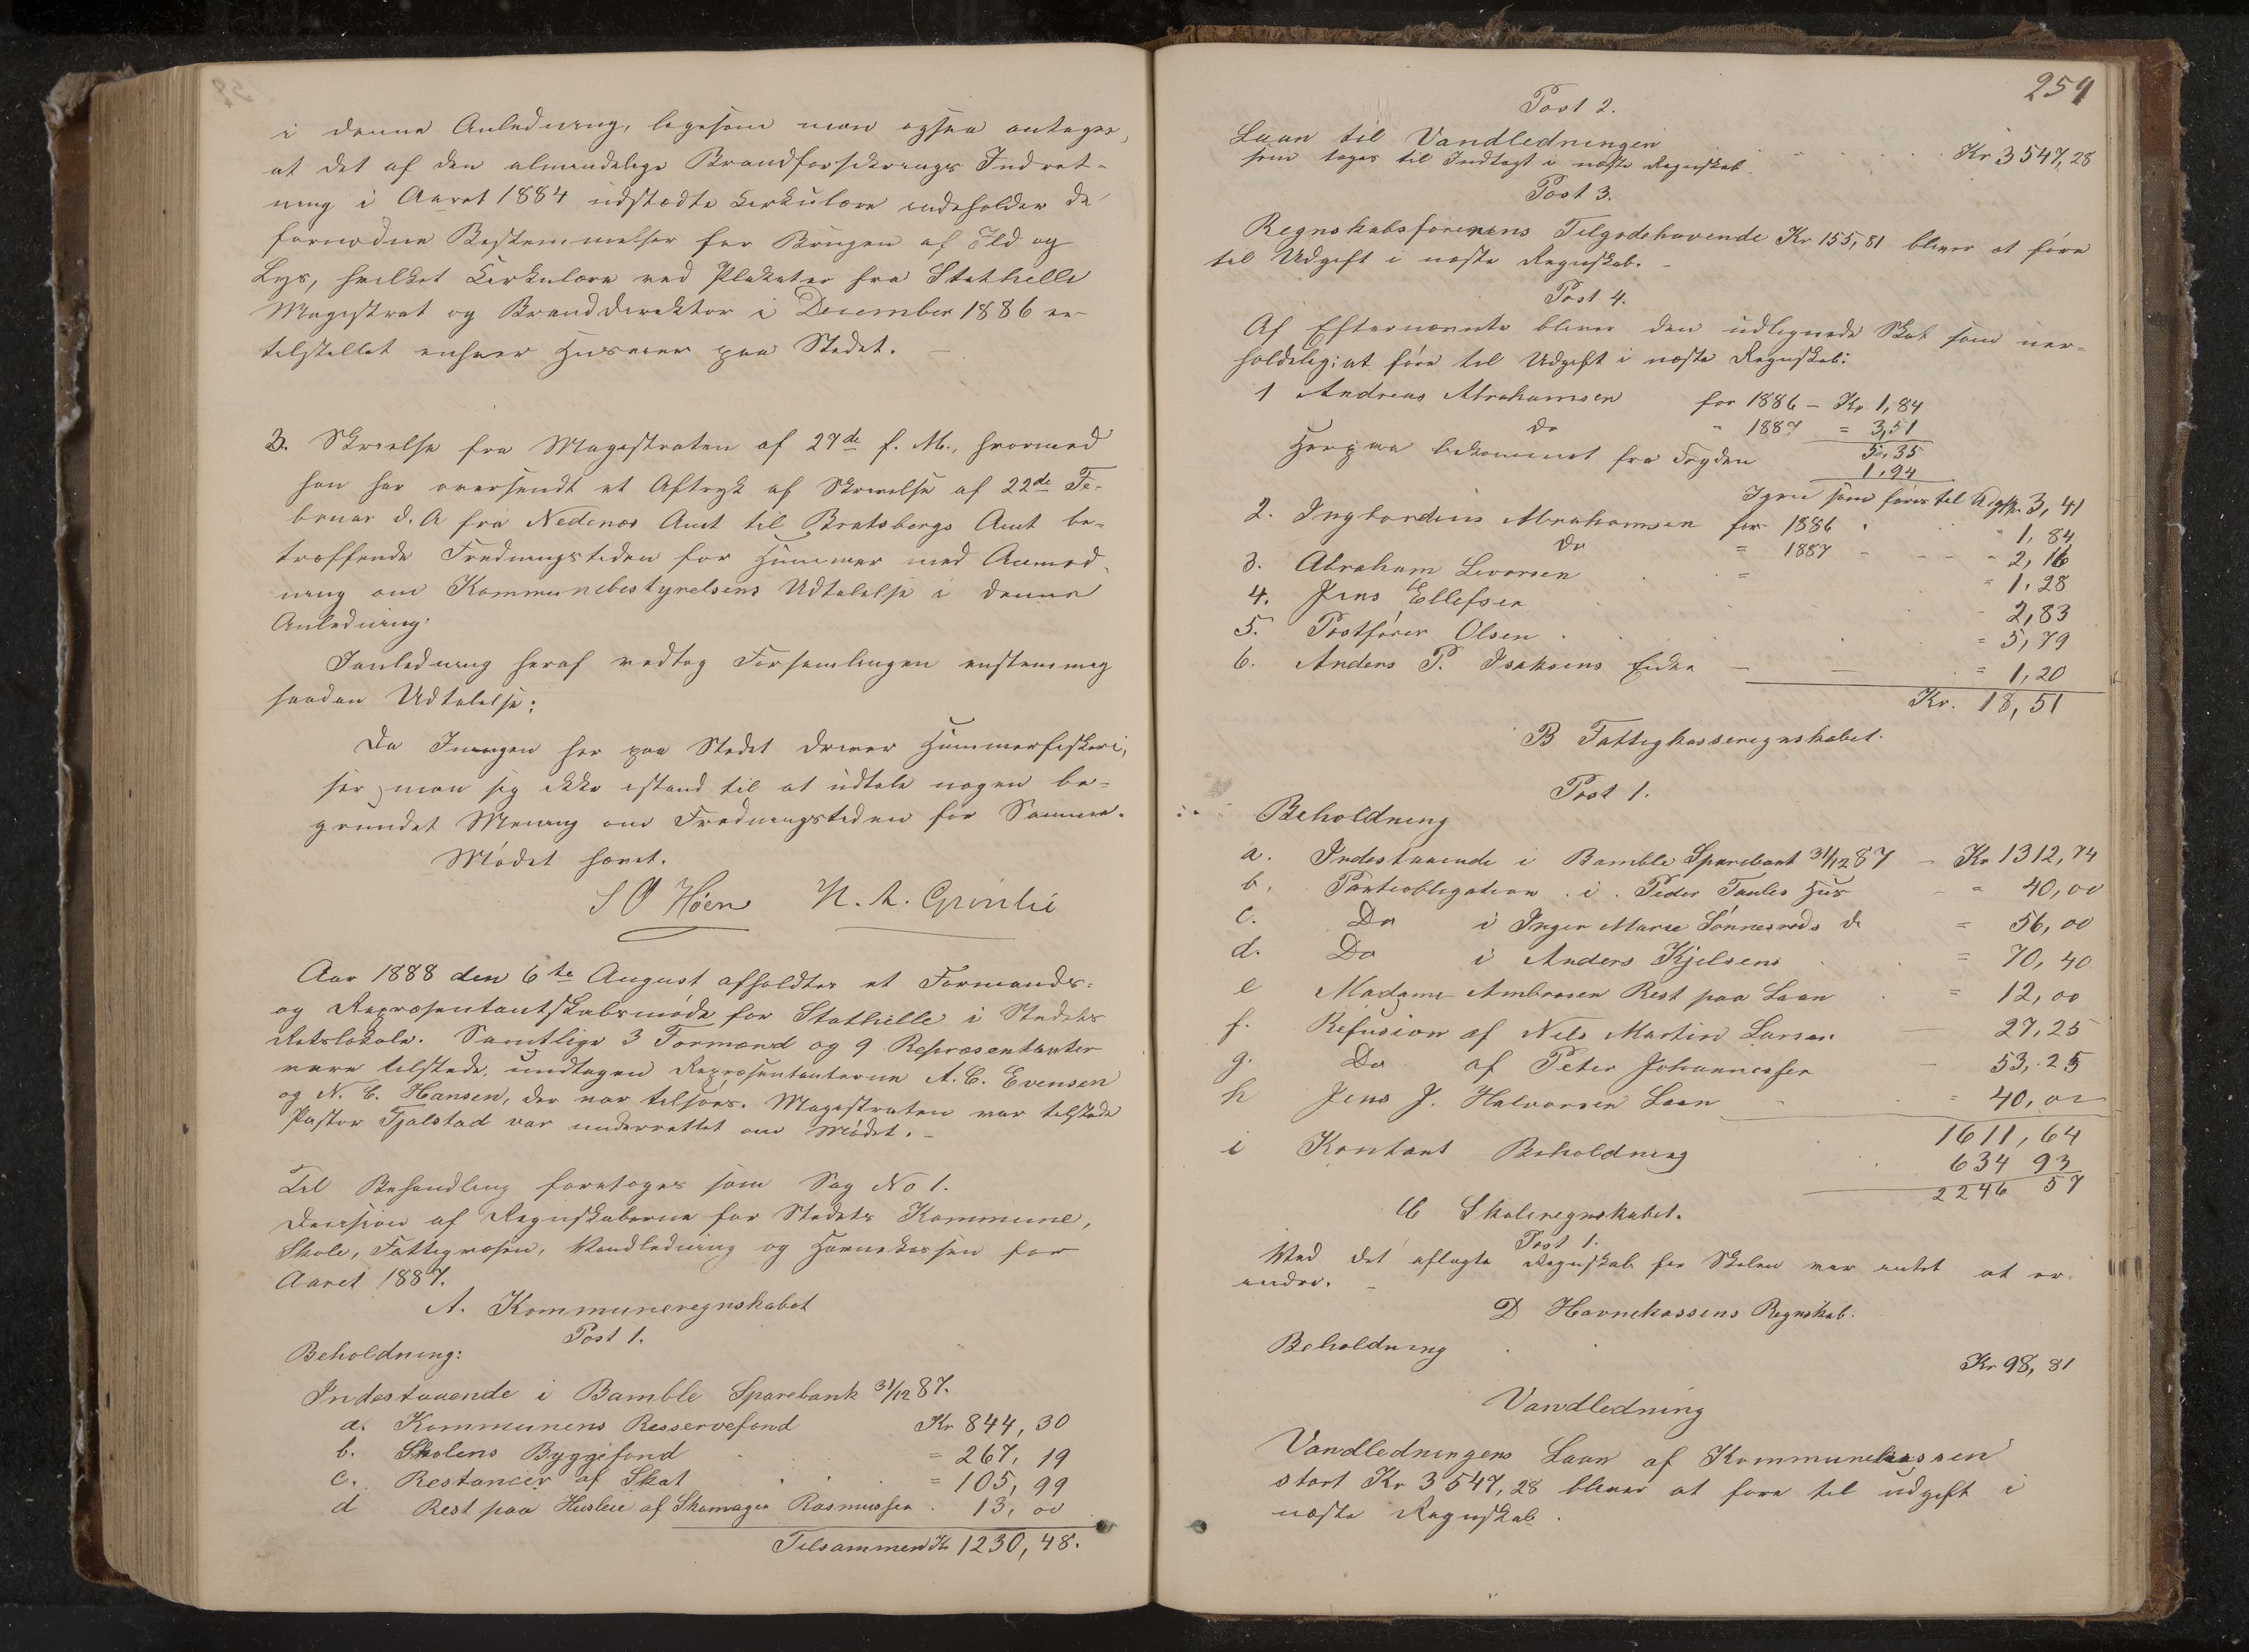 i denne Anledning, ligesom man ogsaa antager,
at det af den almindelige Brandforsikrings Indret-
ning i Aaret 1884 udstædte Cirkulære indeholder de
fornødne Bestemmelser for Brugen af Ild og
Lys, hvilket Cirkulære ved Plakater fra Stathelle
Magistrat og Branddirektør i December 1886 er
tilstillet enhver Huseier paa Stedet. —
3. Skrivelse fra Magistraten af 27de f. M., hvormed
han har oversendt et Aftryk af Skrivelse af 22de Fe-
bruar d. A fra Nedenæs Amt til Bratsbergs Amt be-
træffende Fredningstiden for Hummer med Anmod-
ning om Kommunebestyrelsens Udtalelse i denne
Anledning.
I anledning heraf vedtog Forsamlingen enstemmig
saadan Udtalelse:
Da Ingen her paa Stedet driver Hummerfiskeri,
ser man sig ikke istand til at udtale nogen be-
grundet Mening om Fredningstiden for Samme.
Mødet hævet.
S O Høen N. A. Grinlie
Aar 1888 den 6te August afholdtes et Formands-
og Repræsentantskabsmøde for Stathelle i Stedets
Retslokale. Samtlige 3 Formænd og 9 Repræsentanter
vare tilstede undtagen Repræsentanterne A. C. Evensen
og N. C. Hansen, der var tilsøes. Magistraten var tilstede
Pastor Tjalstad var underrettet om Mødet. —
Til Behandling foretoges som Sag No 1.
Decision af Regnskaberne for Stedets Kommune,
Skole, Fattigvæsen, Vandledning og Havnekassen for
Aaret 1887.
A. Kommuneregnskabet
Post 1.
Beholdning:
Indestaaende i Bamble Sparebank 31/12 87.
a. Kommunens Resservefond Kr 844,30
b. Skolens Byggefond = 267,19
c. Restancer af Skat = 105,99
d Rest paa Husleie af Skomager Rasmussen 13,00
Tilsammen Kr 1230,48.
259
Post 2.
Laan til Vandledningen
som tages til Indtægt i næste Regnskab. Kr 3547,28
Post 3.
Regnskabsførerens Tilgodehavende Kr 155,81 bliver at føre
til Udgift i næste Regnskab. —
Post 4.
Af Efternævnte bliver den udlignede Skat som uer-
holdelig at føre til Udgift i næste Regnskab:
1 Andreas Abrahamsen for 1886 — Kr. 1,84
do " 1887 = 3,51
5,35
Herpaa bekommet fra Fogden 1,94
Igjen som føres til Udgift 3,41
2. Ingbordius Abrahamsen for 1886 " 1,84
Do = 1887 - - - - 2,16
3. Abraham Levorsen = = 1,28
4. Jens Ellefsen 2,83
5. Postfører Olsen = 5,79
6. Anders P. Isaksens Enke — — = 1,20
Kr. 18,51
B Fattigkasseregnskabet.
Post 1.
Beholdning
a. Indestaaende i Bamble Sparebank 31/12 87 — Kr 1312,74
b. Panteobligation i Peder Taules Hus = 40,00
c. Do i Inger Marie Sønnerøds d = 56,00
d. Do i Anders Kjelsens = 70,40
e Madame Ambrosen Rest paa Laan = 12,00
f. Refusion af Nils Martin Larsen — 27,25
g. Do af Peter Johannessen — 53,25
h Jens J. Halvorsen Laan = 40,00
1611,64
i Kontant Beholdning 634 93
2246 57
C Skoleregnskabet.
Post 1.
Ved det aflagte Regnskab for Skolen var intet at er-
indre. —
D Havnekassens Regnskab.
Beholdning Kr 98,81
Vandledning
Vandledningens Laan af Kommunekassen
stort Kr 3547,28 bliver at føre til udgift i
næste Regnskab.